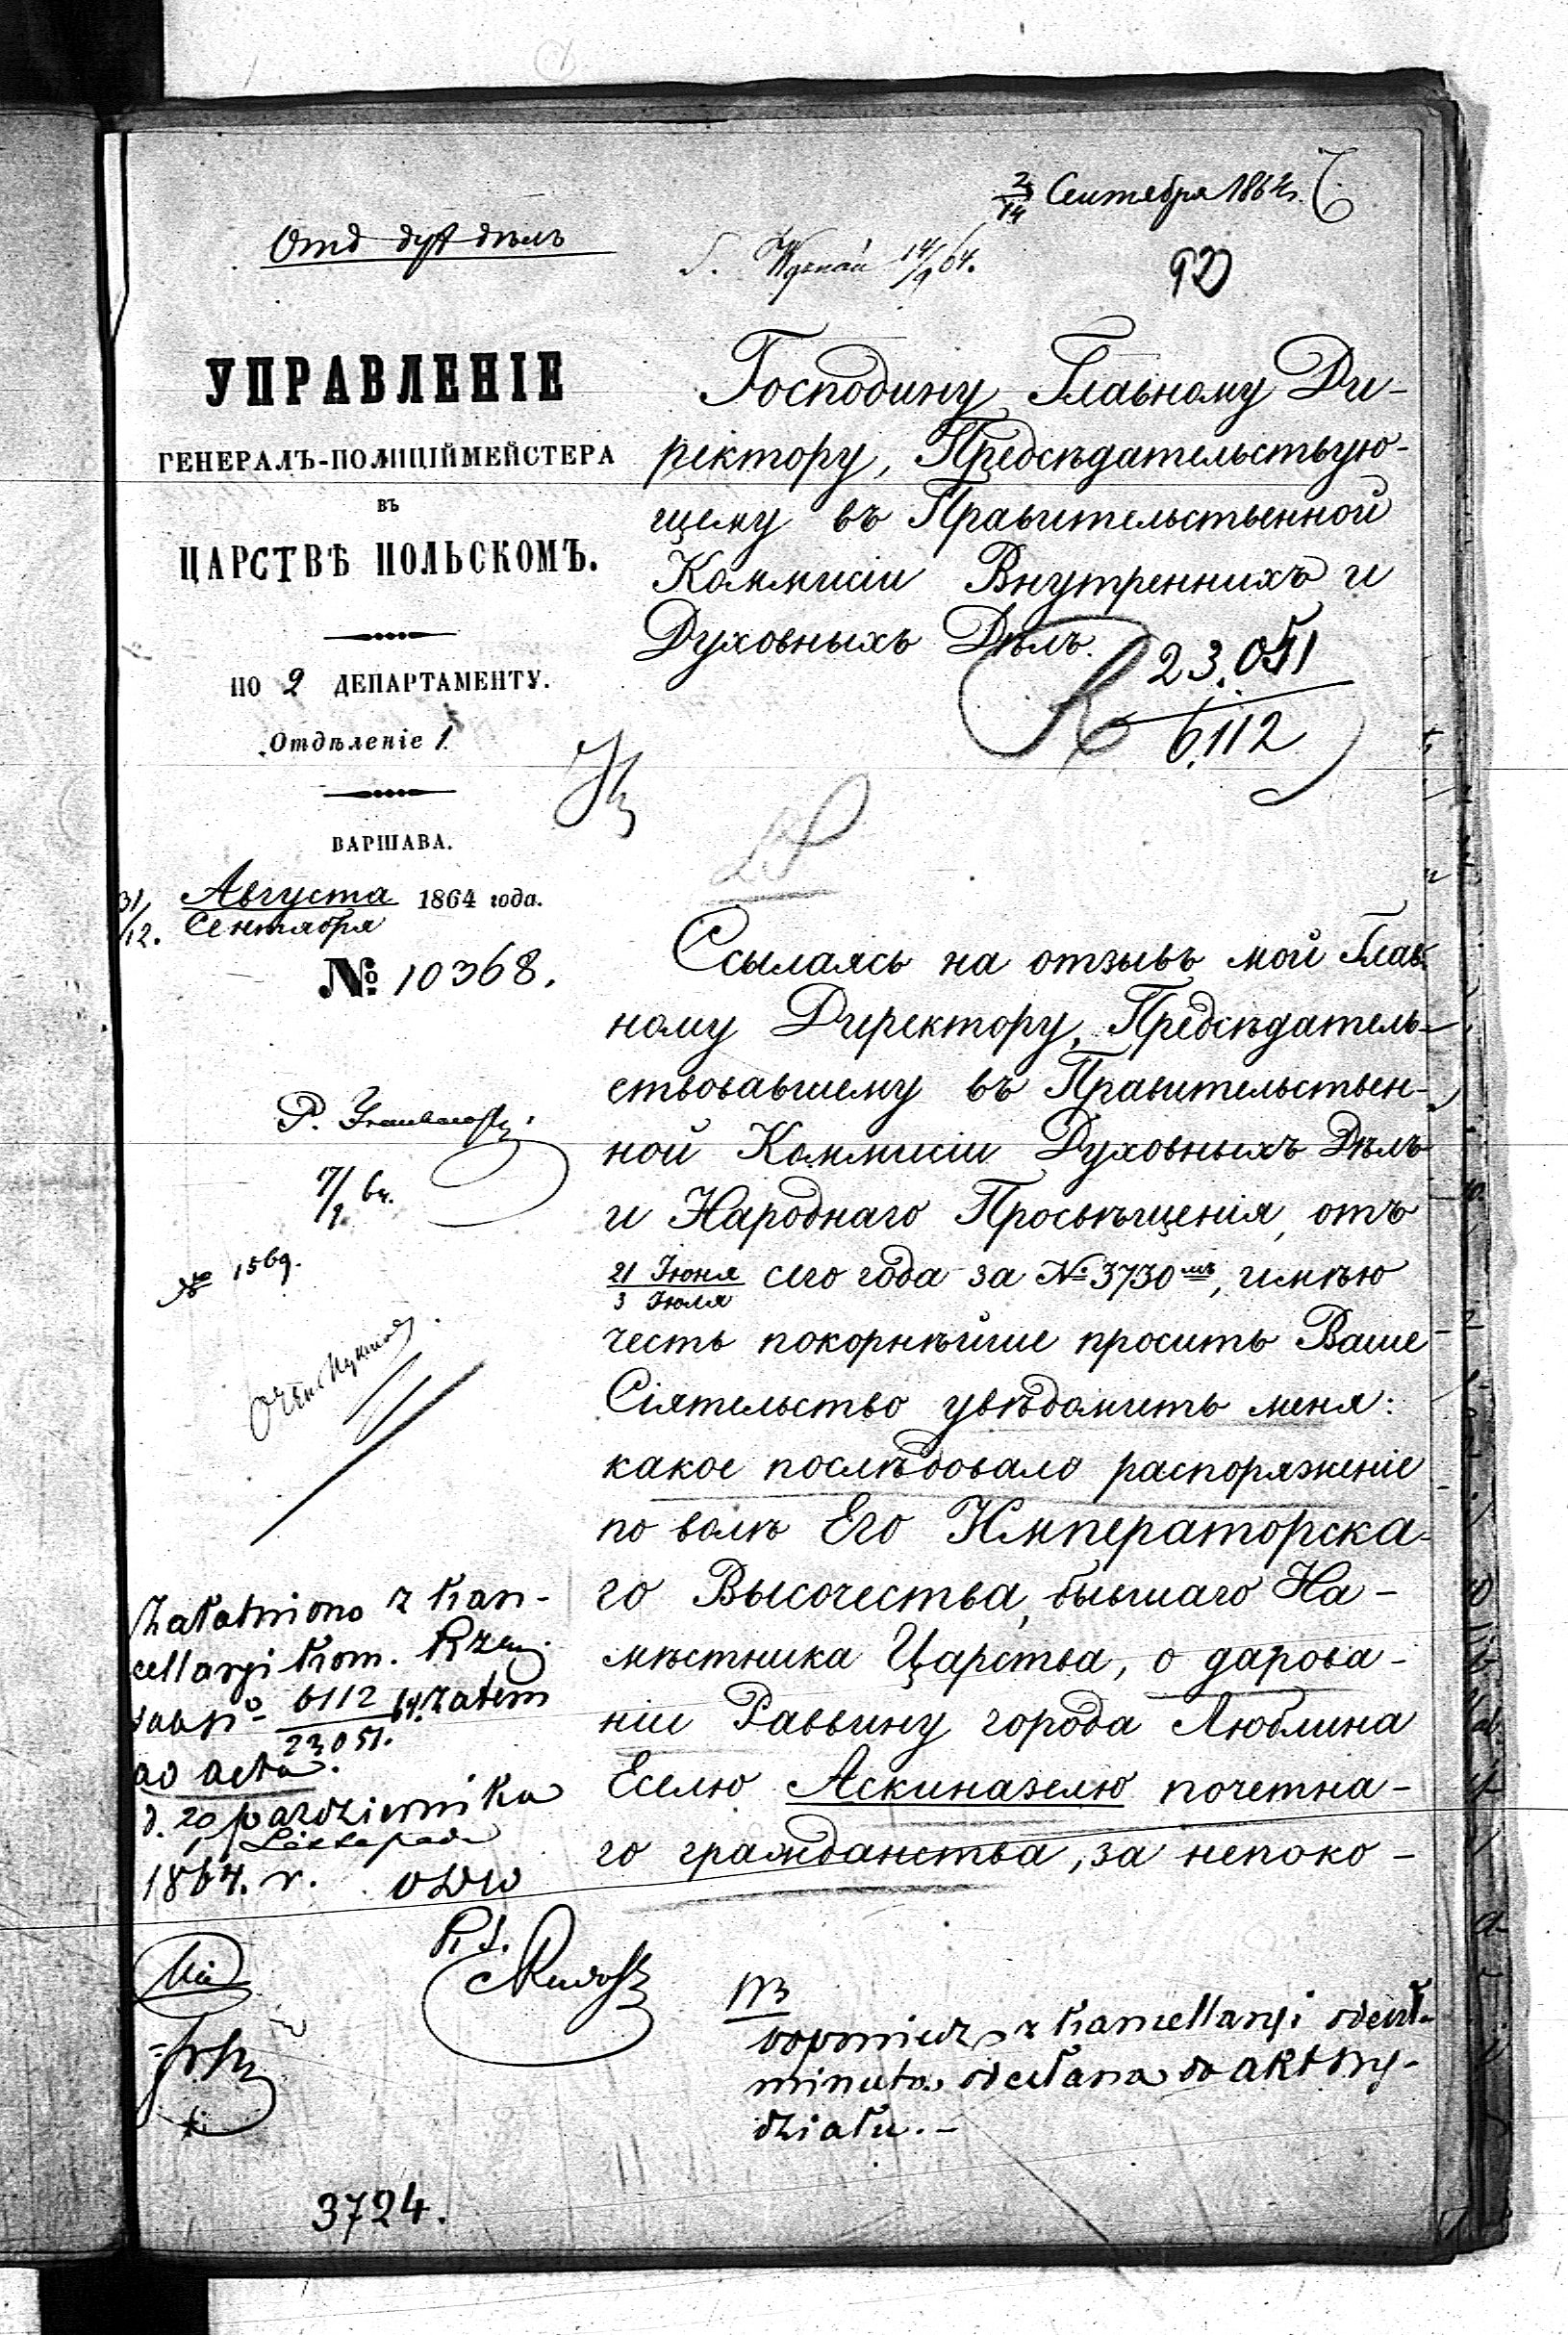 2/14 Сентября 1864 г.
Отд дух дѣлъ
14/9 64.
92
УПРАВЛЕНІЕ
ГЕНЕРАЛЪ-ПОЛИЦІЙМЕЙСТЕРА
ВЪ
ЦАРСТВѢ ПОЛЬСКОМЪ.
ПО 2 ДЕПАРТАМЕНТУ.
Отдѣленіе 1
ВАРШАВА.
31/12. Августа Сентября 1864 года.
№ 10368.
Господину Главному Ди-
ректору, Предсѣдательствую-
щему въ Правительственной
Коммисіи Внутреннихъ и
Духовныхъ Дѣлъ.
23.051
6112
Ссылаясь на отзывъ мой Глав-
ному Директору, Предсѣдатель-
ствовавшему въ Правительствен-
ной Коммисіи Духовныхъ Дѣлъ
и Народнаго Просвѣщенія, отъ
21 Іюня/3 Іюля сего года за № 3730мъ, имѣю
честь покорнѣйше просить Ваше
Сіятельство увѣдомить меня:
какое послѣдовало распоряженіе
по волѣ Его Императорска-
го Высочества, бывшаго На-
мѣстника Царства, о дарова-
ніи Раввину города Люблина
Еселю Аскиназелю почетна-
го гражданства, за непоко-
P.
17/9 64.
№ 1569.
Załatwiono z Kan-
cellaryi Kom. Rząd.
6112/23051. 64. zatem
ad acta.
d. 20 października
1 Listopada
1864. r.
NB
odpowiedź z Kancellaryi
minuta odesłana do akt Wy-
działu.-
3724.